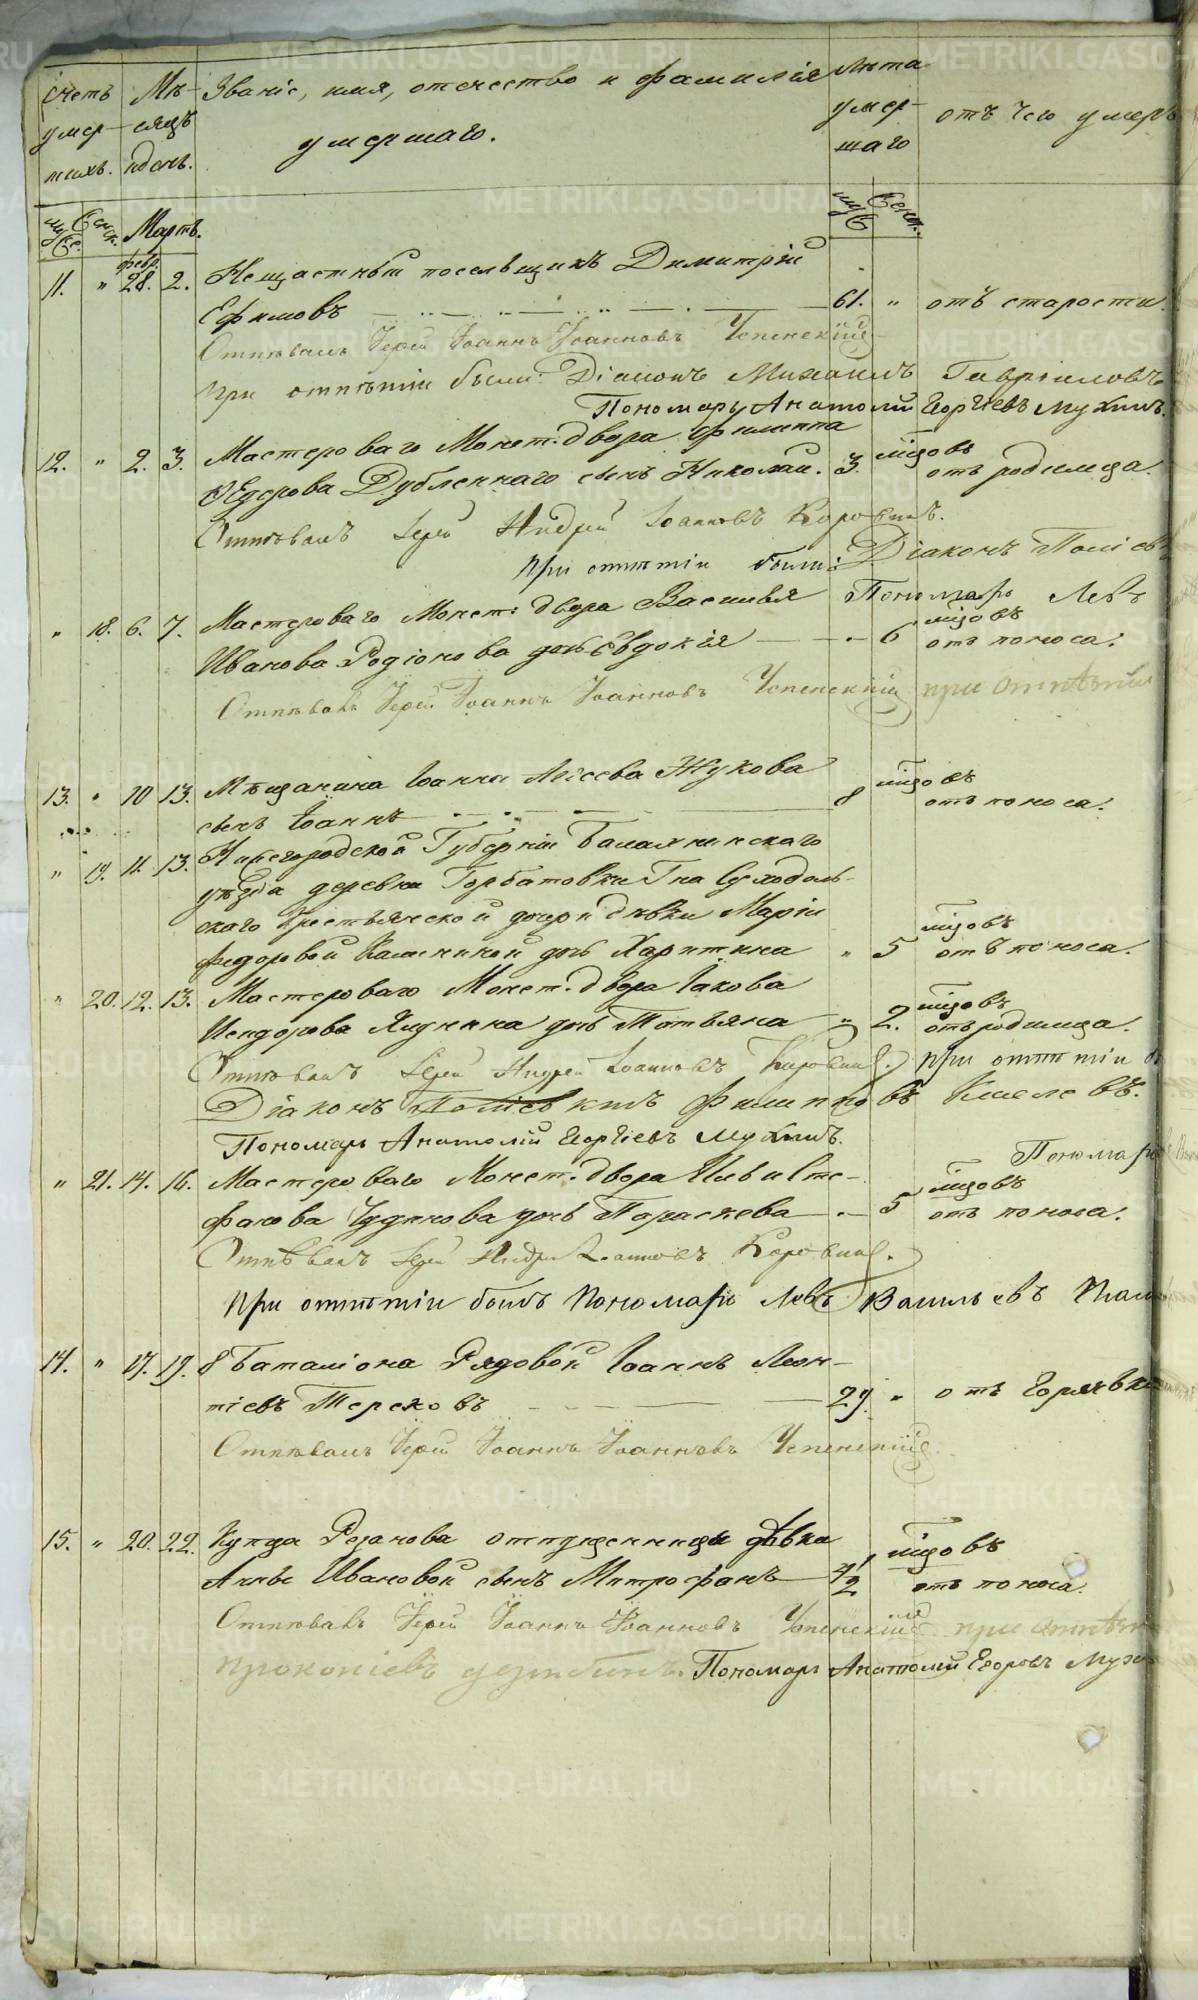 Счетъ Мѣ- Званіе, имя, отчество и фамилія Лѣта
умер- сяцъ умершаго. умер- отъ чего умеръ
шихъ. и день. шаго
муж. женск. Мартъ. муж. женск.
февр.
11. " 28. 2. Нещастный посельщикъ Димитрій
Ефимовъ 61. " отъ старости.
Отпѣвалъ Іерей Іоаннъ Іоанновъ Успенскій
при отпѣтіи были: Діаконъ Михаилъ Гавріиловъ
Пономарь Анатолій Георгіевъ Мухинъ.
12. " 2. 3. Мастероваго Монет. двора Филиппа мцовъ
Ѳедорова Дубленнаго сынъ Николай. 3. отъ родимца.
Отпѣвалъ Іерей Андрей Іоанновъ Коровинъ.
при отпѣтіи были: Діаконъ
" 18. 6. 7. Мастероваго Монет: двора Василья Пономарь Левъ
мцовъ
Иванова Родіонова дочь Евдокія 6 отъ поноса.
Отпѣвалъ Іерей Іоаннъ Іоанновъ Успенскій при отпѣтіи
13. " 10 13. Мѣщанина Іоанна Жукова мцовъ
сынъ Іоаннъ 8 отъ поноса.
" 19. 11. 13. Нижегородской Губерніи Балахнинскаго
уѣзда деревни Горбатовки Гна Суходоль-
скаго крестьянской дочери дѣвки Маріи мцовъ
Федоровой дочь Харитина " 5 отъ поноса.
" 20. 12. 13. Мастероваго Монет. двора Іакова мцовъ
дочь Татьяна " 2. отъ родимца.
Отпѣвалъ Іерей Андрей Іоанновъ Коровинъ. при отпѣтіи
Діаконъ Филипповъ Киселевъ.
Пономарь Анатолій Георгіевъ Мухинъ.
Пономарь
" 21. 14. 16. Мастероваго Монет. двора Ильи Сте- мцовъ
фанова Чудинова дочь Параскева 5 отъ поноса.
Отпѣвалъ Іерей Андрей Іоанновъ Коровинъ.
при отпѣтіи былъ Пономарь Левъ Васильевъ
14. " 17. 19. 8 Баталіона Рядовой Іоаннъ Леон-
тіевъ Тереховъ 29. " отъ Горячки
Отпѣвалъ Іерей Іоаннъ Іоанновъ Успенскій
15. " 20. 22. Купца Резанова отпущенницы дѣвки мцовъ
Анны Ивановой сынъ Митрофанъ 4 1/2 отъ поноса.
Отпѣвалъ Іерей Іоаннъ Іоанновъ Успенскій при отпѣтіи
Прокопіевъ Пономарь Анатолій Егоровъ
METRIKI.GASO-URAL.RU